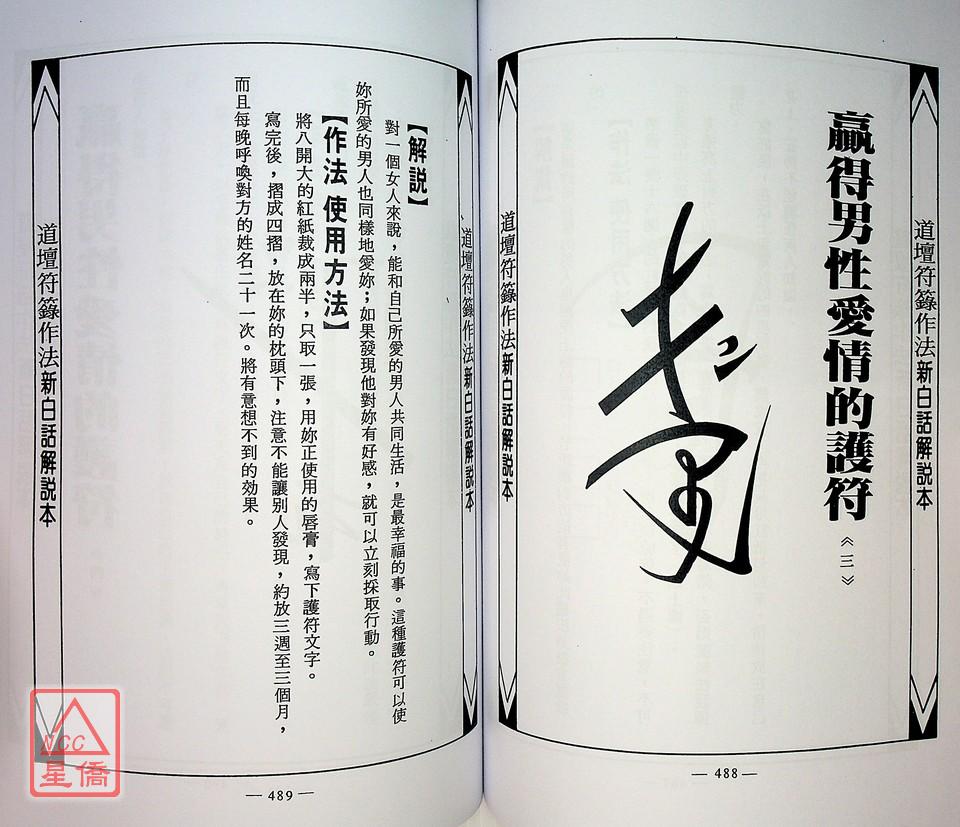 道壇符籙作法新白話解說本
贏得男性愛情的護符
《三》
道壇符籙作法新白話解說本
— 488 —
道壇符籙作法新白話解說本
【解説】
對一個女人來說，能和自己所愛的男人共同生活，是最幸福的事。這種護符可以使
妳所愛的男人也同樣地愛妳；如果發現他對妳有好感，就可以立刻採取行動。
【作法 使用方法】
將八開大的紅紙裁成兩半，只取一張，用妳正使用的唇膏，寫下護符文字。
寫完後，摺成四摺，放在妳的枕頭下，注意不能讓别人發現，約放三週至三個月，
而且每晚呼喚對方的姓名二十一次。將有意想不到的效果。
道壇符籙作法新白話解說本
— 489 —
NCC
星僑